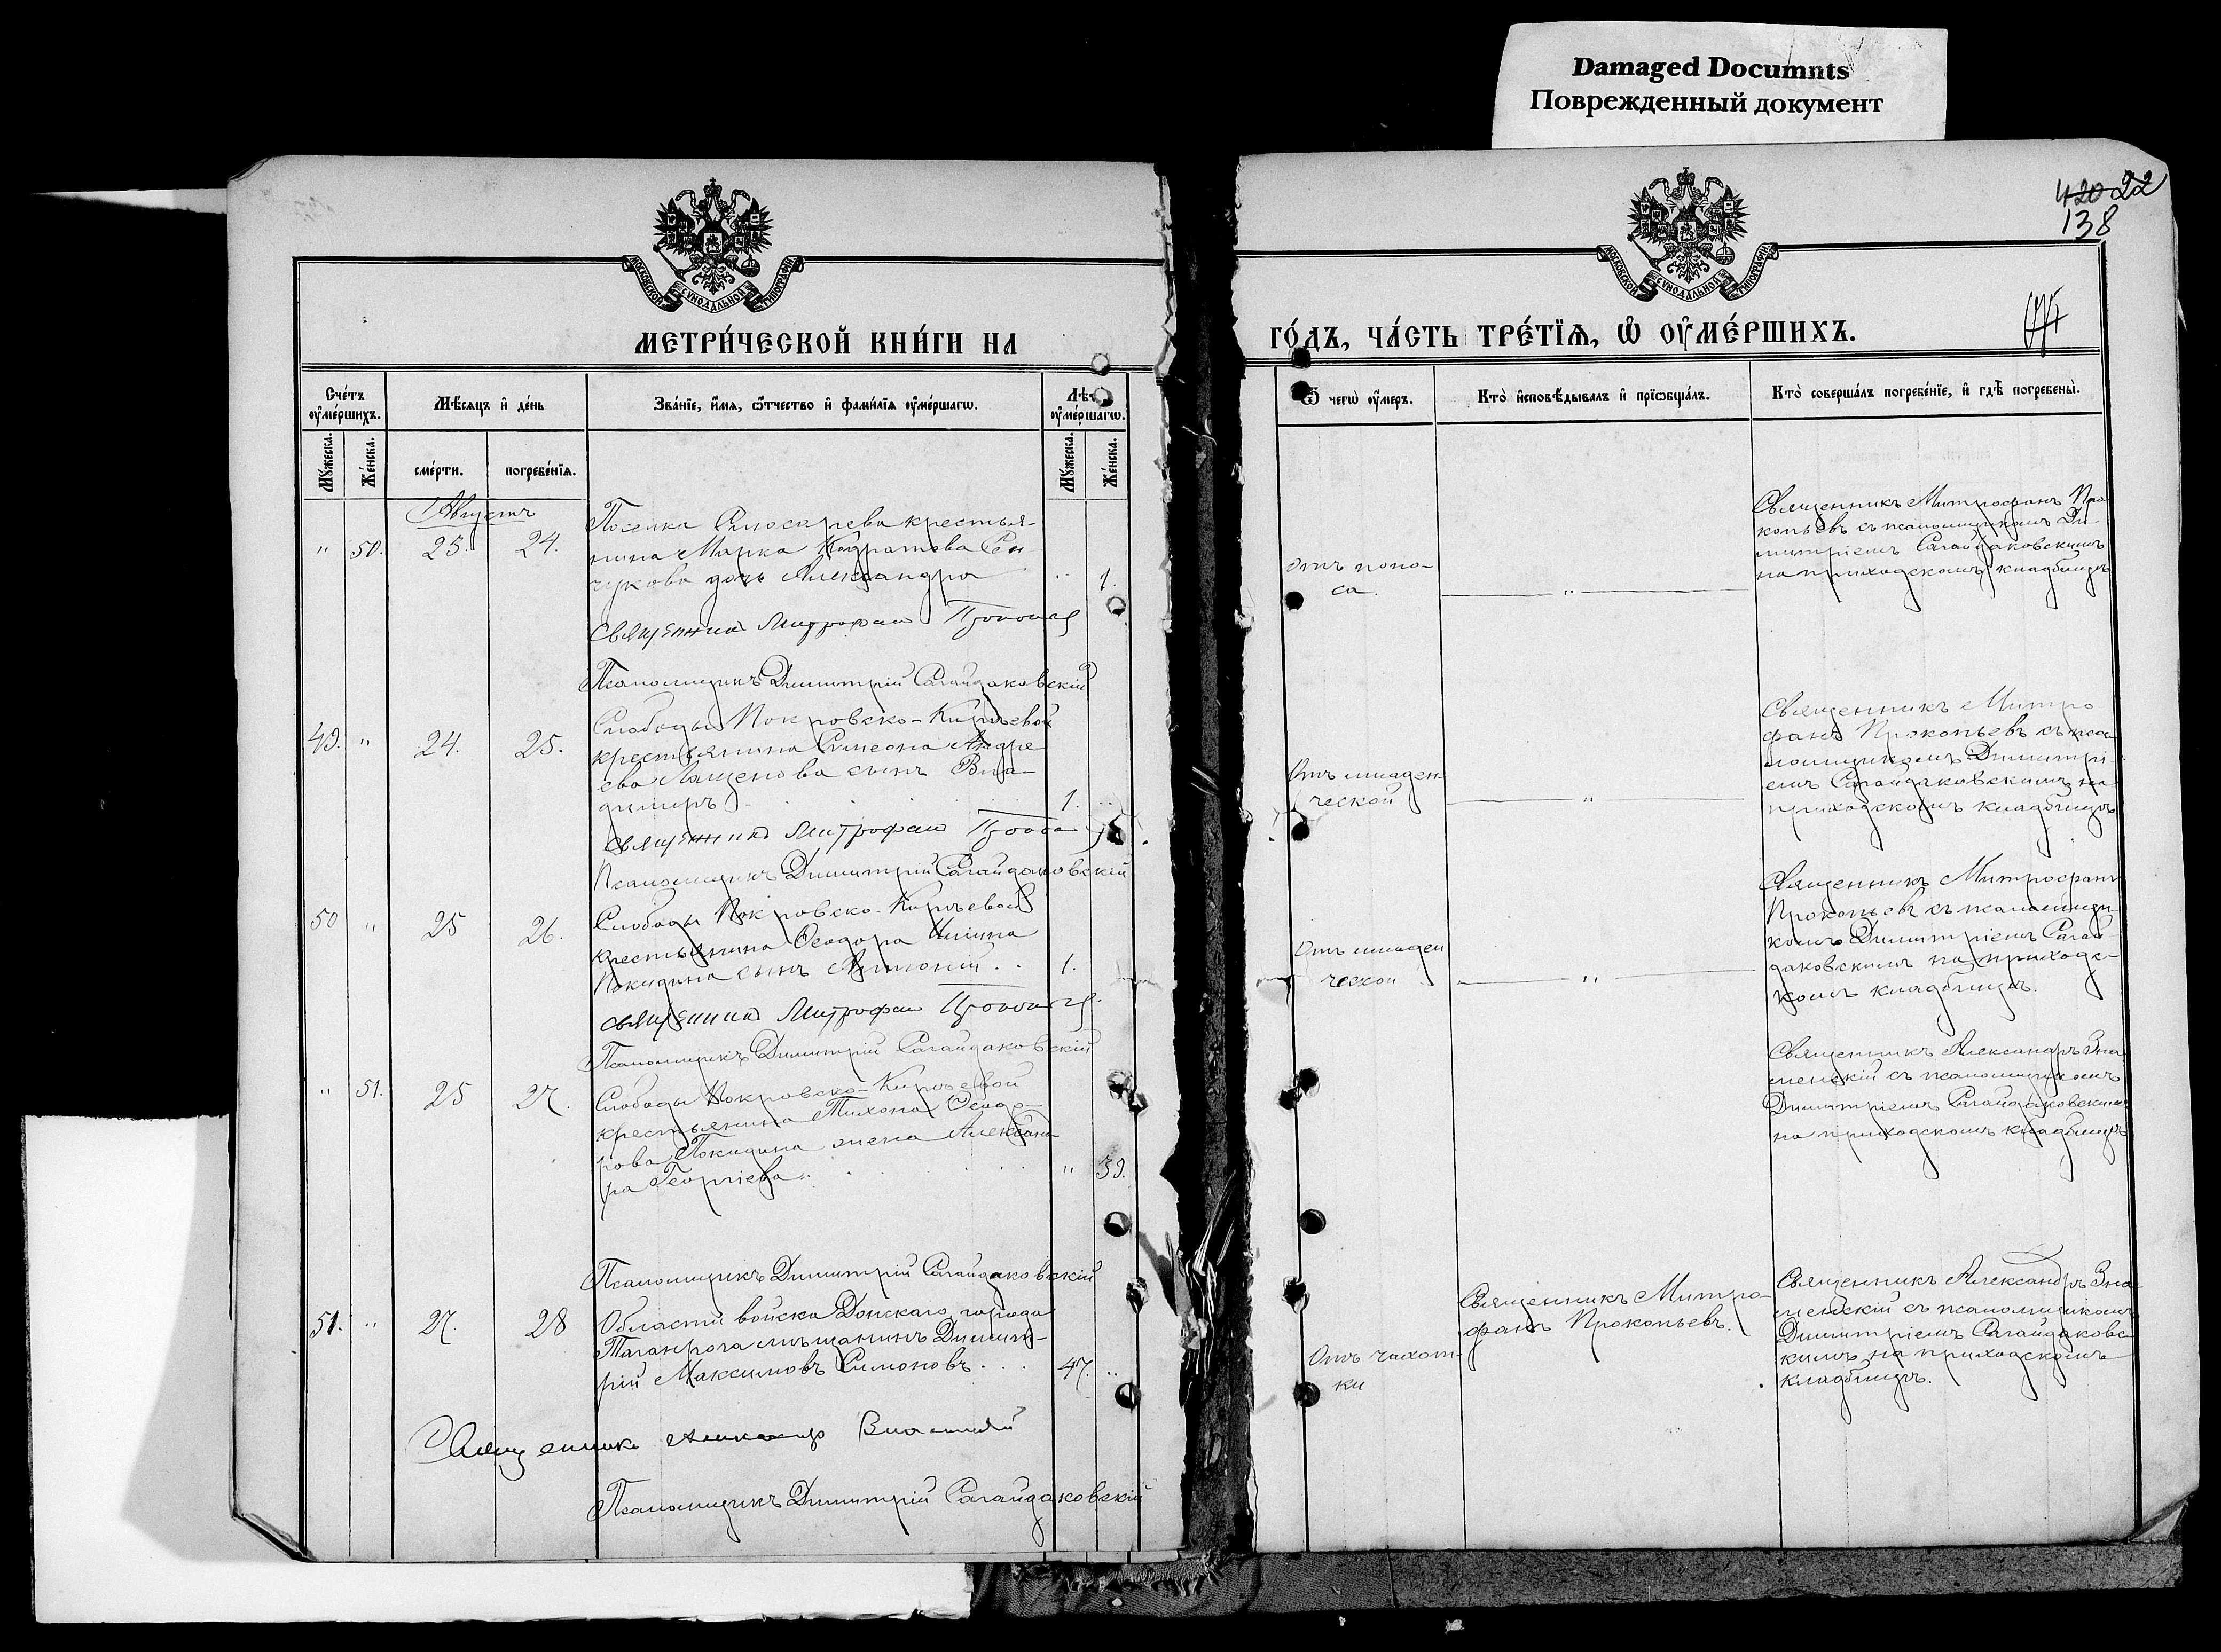 Damaged Documnts
Поврежденный документ
420 22
138
МОСКОВСКОЙ СУНОДАЛЬНОЙ ТИПОГРАФІИ
МОСКОВСКОЙ СУНОДАЛЬНОЙ ТИПОГРАФІИ
МЕТРИ́ЧЕСКОЙ КНИ́ГИ НА
ГО́ДЪ, ЧА́СТЬ ТРЕ́ТЇѦ, Ѡ҆ ОУ҆МЕ́РШИХЪ.
Сче́тъ оу҆ме́ршихъ.
Мѣ́сѧцъ и҆ де́нь
Зва́нїе, и҆́мѧ, ѻ҆́тчество и҆ фами́лїѧ оу҆ме́ршагѡ.
Лѣ́т
оу҆ме́ршагѡ.
Ѿ чегѡ̀ оу҆́меръ.
Кто̀ и҆сповѣ́дывалъ и҆ прїѡбща́лъ.
Кто̀ соверша́лъ погребе́нїе, и҆ гдѣ̀ погребены̀.
Мꙋ́жеска.
Же́нска.
сме́рти.
погребе́нїѧ.
Мꙋ́жеска.
Же́нска.
Августъ
" 50. 23. 24.
Поселка Слюсарева крестья-
нина Марка
дочь Александра " 1.
Отъ поно-
са.
Священникъ Митрофанъ Про-
копьевъ съ псаломщикомъ Ди-
митріемъ Сагайдаковскимъ
на приходскомъ кладбищѣ
Священникъ Митрофанъ
Псаломщикъ Димитрій Сагайдаковскій
49. " 24. 25.
Слободы Покровско-Кирѣевой
крестьянина Симеона Андре
ева Лащенова сынъ Вла-
димиръ 1. "
Отъ младен
ческой
Священникъ Митро
фанъ Прокопьевъ съ пса
ломщикомъ Димитрі
емъ Сагайдаковскимъ на
приходскомъ кладбищѣ
Священникъ Митрофанъ
Псаломщикъ Димитрій Сагайдаковскій
50 " 25 26.
Слободы Покровско-Кирѣевой
крестьянина Ѳеодора Иліина
Покидина сынъ Антоній . . 1.
Отъ младен
ческой
Священникъ Митрофанъ
Прокопьевъ съ псаломщи
комъ Димитріемъ Сагай
даковскимъ на приходс-
комъ кладбищѣ.
Священникъ Митрофанъ
Псаломщикъ Димитрій Сагайдаковскій
" 51. 25 27.
Слободы Покровско-Кирѣевой
крестьянина Тихона Ѳеодо-
рова Покидина жена Александ
ра Георгіева " 39.
Священникъ Александръ Зна
менскій съ псаломщикомъ
Димитріемъ Сагайдаковскимъ
на приходскомъ кладбищѣ
Псаломщикъ Димитрій Сагайдаковскій
51. " 27. 28
Области войска Донскаго, города
Таганрога мѣщанинъ Димит-
рій Максимовъ Симоновъ . . . 47. "
Отъ чахот-
ки
Священникъ Митро-
фанъ Прокопьевъ.
Священникъ Александръ Зна
менскій съ псаломщикомъ
Димитріемъ Сагайдаковс-
кимъ на приходскомъ
кладбищѣ.
Священникъ Александръ
Псаломщикъ Димитрій Сагайдаковскій